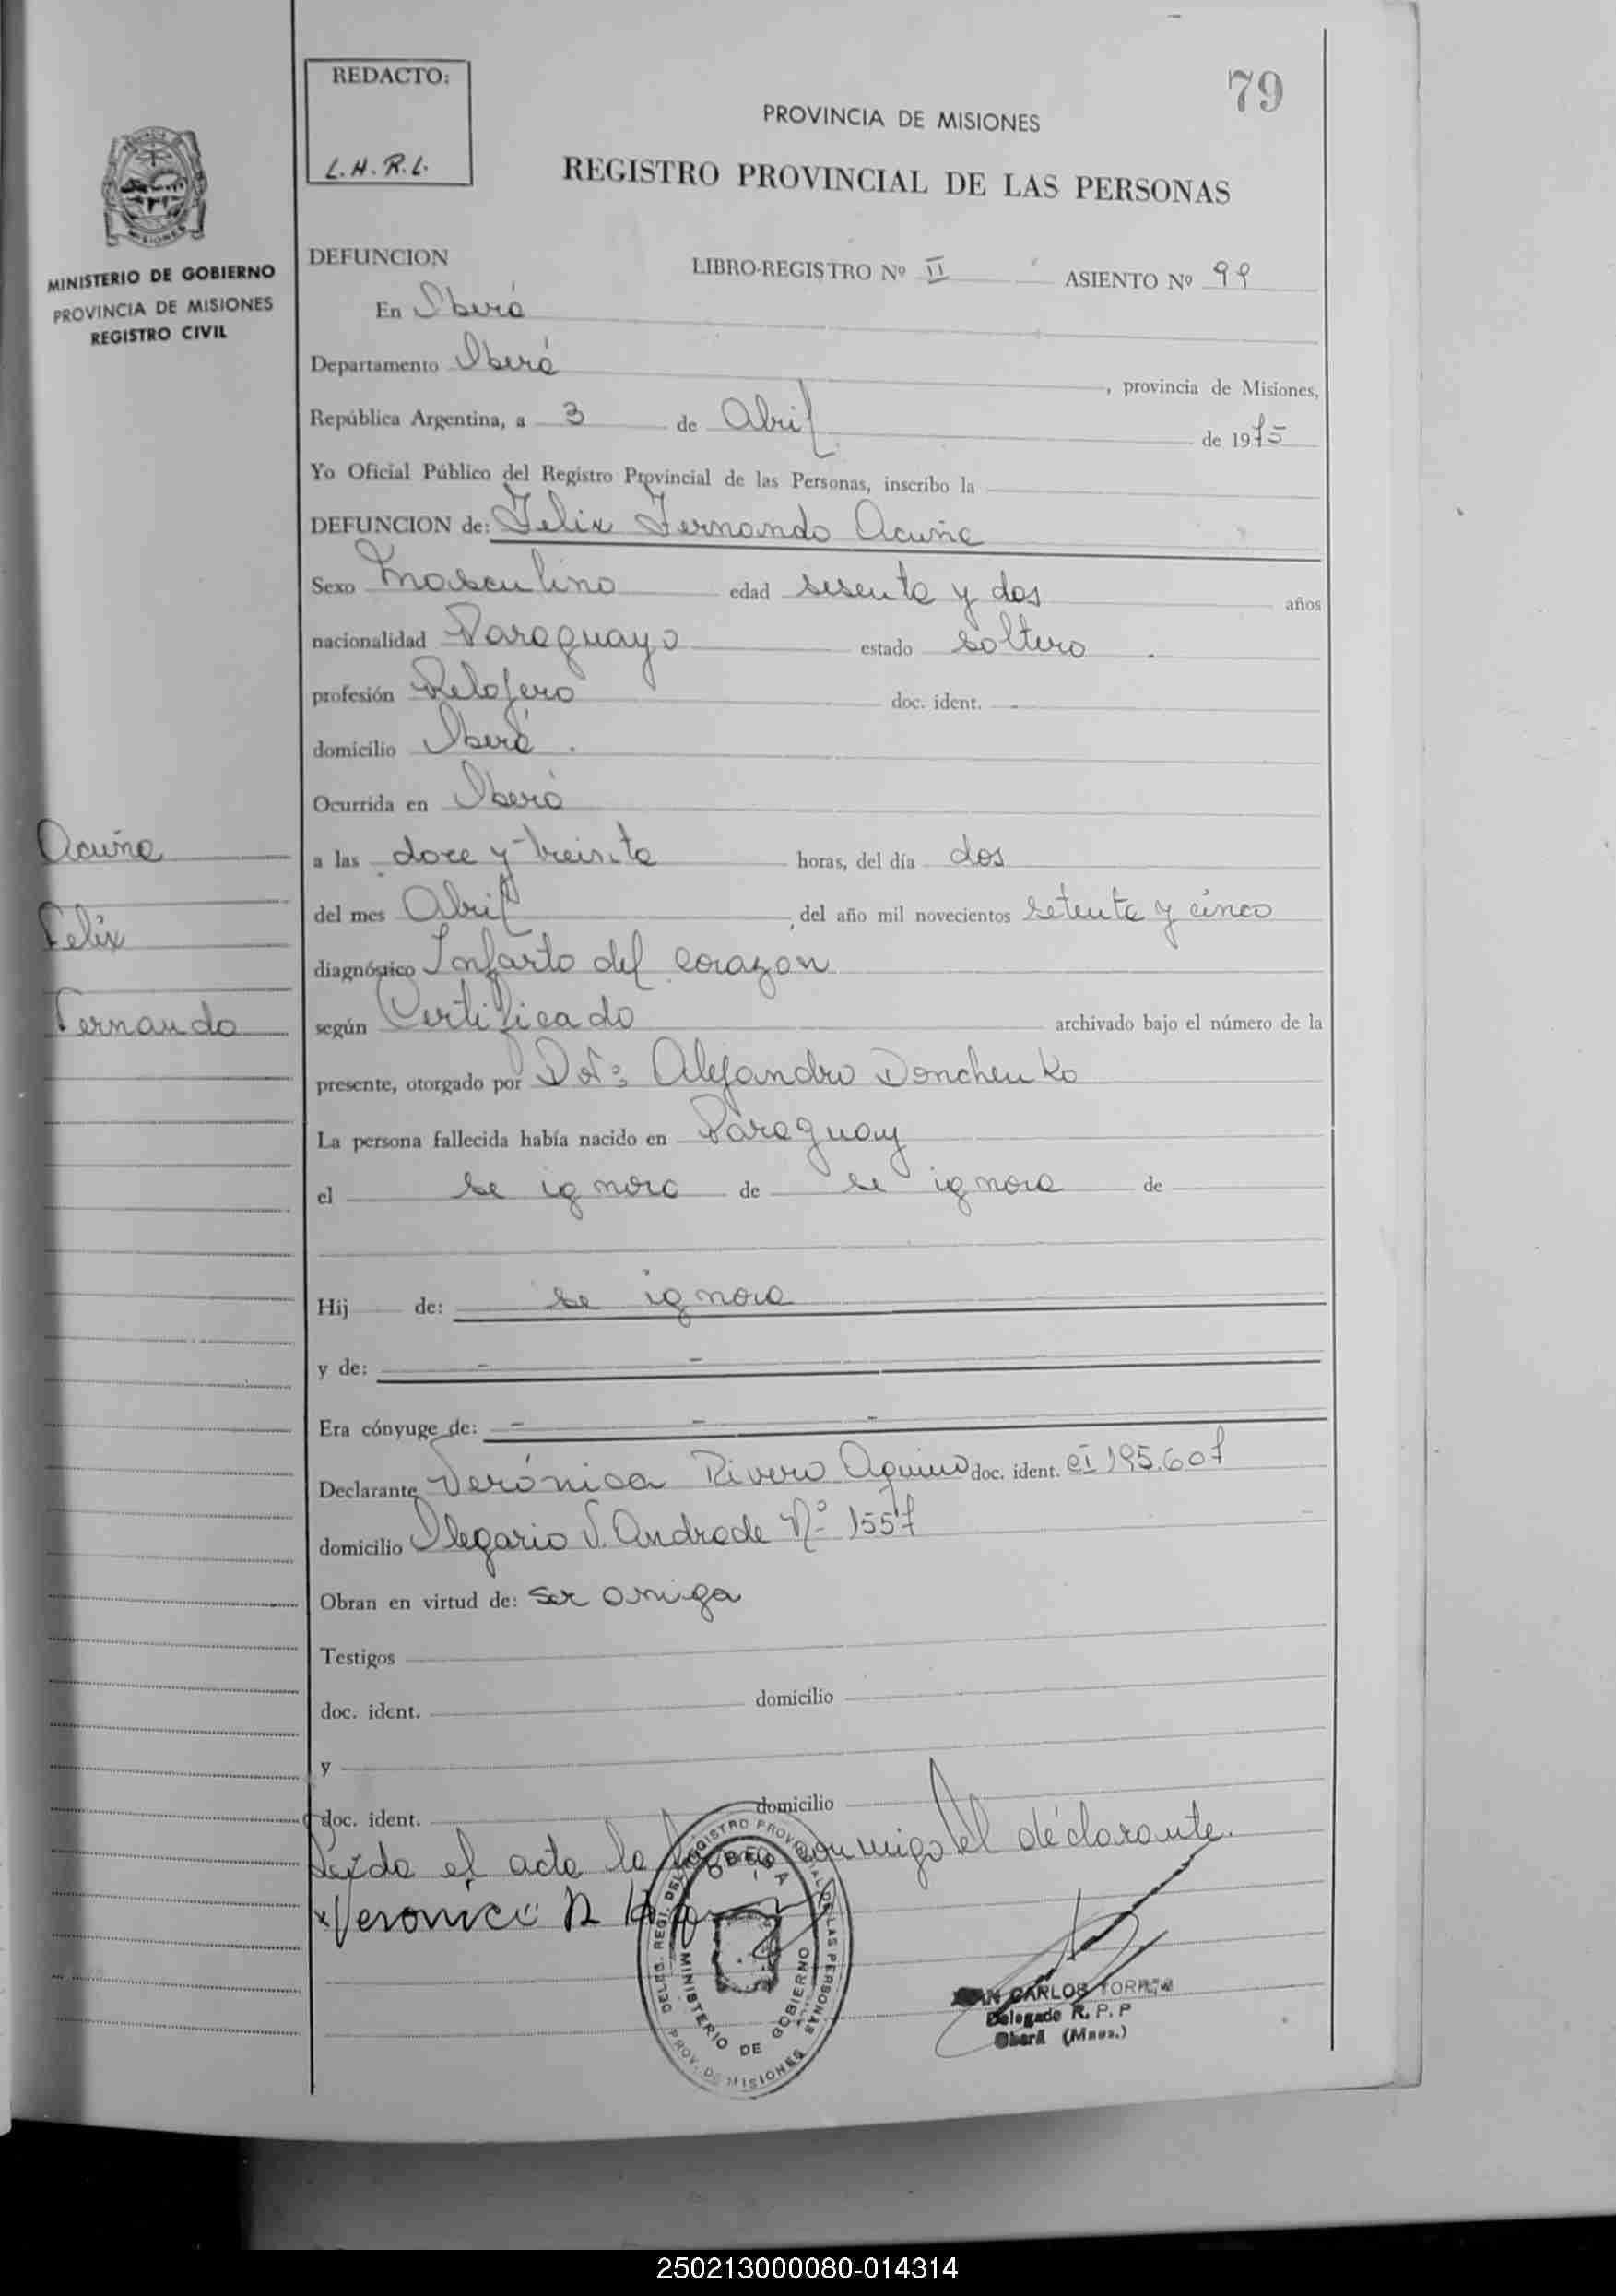 79
REDACTO:
L.H.R.L.
PROVINCIA DE MISIONES
REGISTRO PROVINCIAL DE LAS PERSONAS
MINISTERIO DE GOBIERNO
PROVINCIA DE MISIONES
REGISTRO CIVIL
DEFUNCION LIBRO-REGISTRO Nº II ASIENTO Nº 99
En Oberá
Departamento Oberá, provincia de Misiones,
República Argentina, a 3 de Abril de 1975
Yo Oficial Público del Registro Provincial de las Personas, inscribo la
DEFUNCION de: Felix Fernando Acuña
Sexo Masculino edad sesenta y dos años
nacionalidad Paraguayo estado soltero
profesión Relojero doc. ident. -
domicilio Oberá.
Ocurrida en Oberá
Acuña
Felix
Fernando
a las doce y treinta horas, del día dos
del mes Abril, del año mil novecientos setenta y cinco
diagnóstico Infarto del corazon
según Certificado archivado bajo el número de la
presente, otorgado por Alejandro Donchenko
La persona fallecida había nacido en Paraguay
el se ignora de se ignora de
Hij de: se ignora
y de: - -
Era cónyuge de: - - -
Declarante Verónica Rivero Aquino doc. ident. CI 195.607
domicilio Olegario V. Andrade Nº 1557
Obran en virtud de: ser amiga
Testigos
doc. ident. domicilio
y
doc. ident. domicilio
Leída el acta la conmigo el declarante.
Veronica R
DELEG. REGI. DEL REGISTRO PROVINCIAL DE LAS PERSONAS
OBERA
MINISTERIO DE GOBIERNO
PROV. DE MISIONES
JUAN CARLOS TORRES
Delegado R. P. P
Oberá (Mnes.)
250213000080-014314